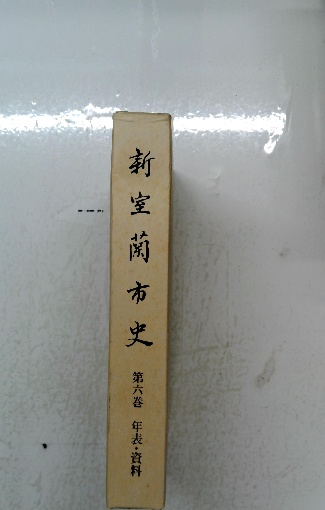 新室蘭市史 第六巻 年表・資料